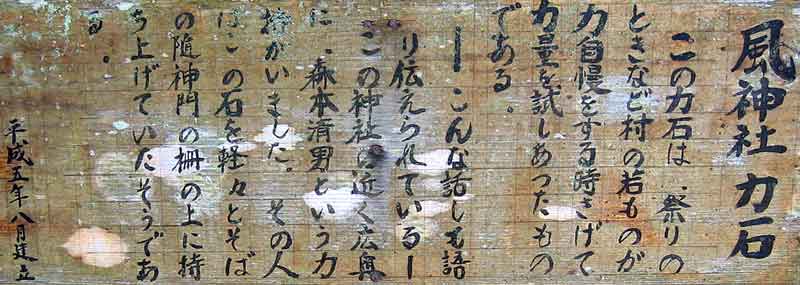 風神社力石
この力石は、祭りの
ときなど村の若ものが
力自慢をする時さげて
力量を試しあつたもの
である。
ーこんな話しも語
り伝えられているー
この神社に近く広奥
に、森本済男という力
持がいました。その人
はこの石を軽々とそば
の随神門の柵の上に持
ち上げていたそうであ
る。
平成五年八月建立